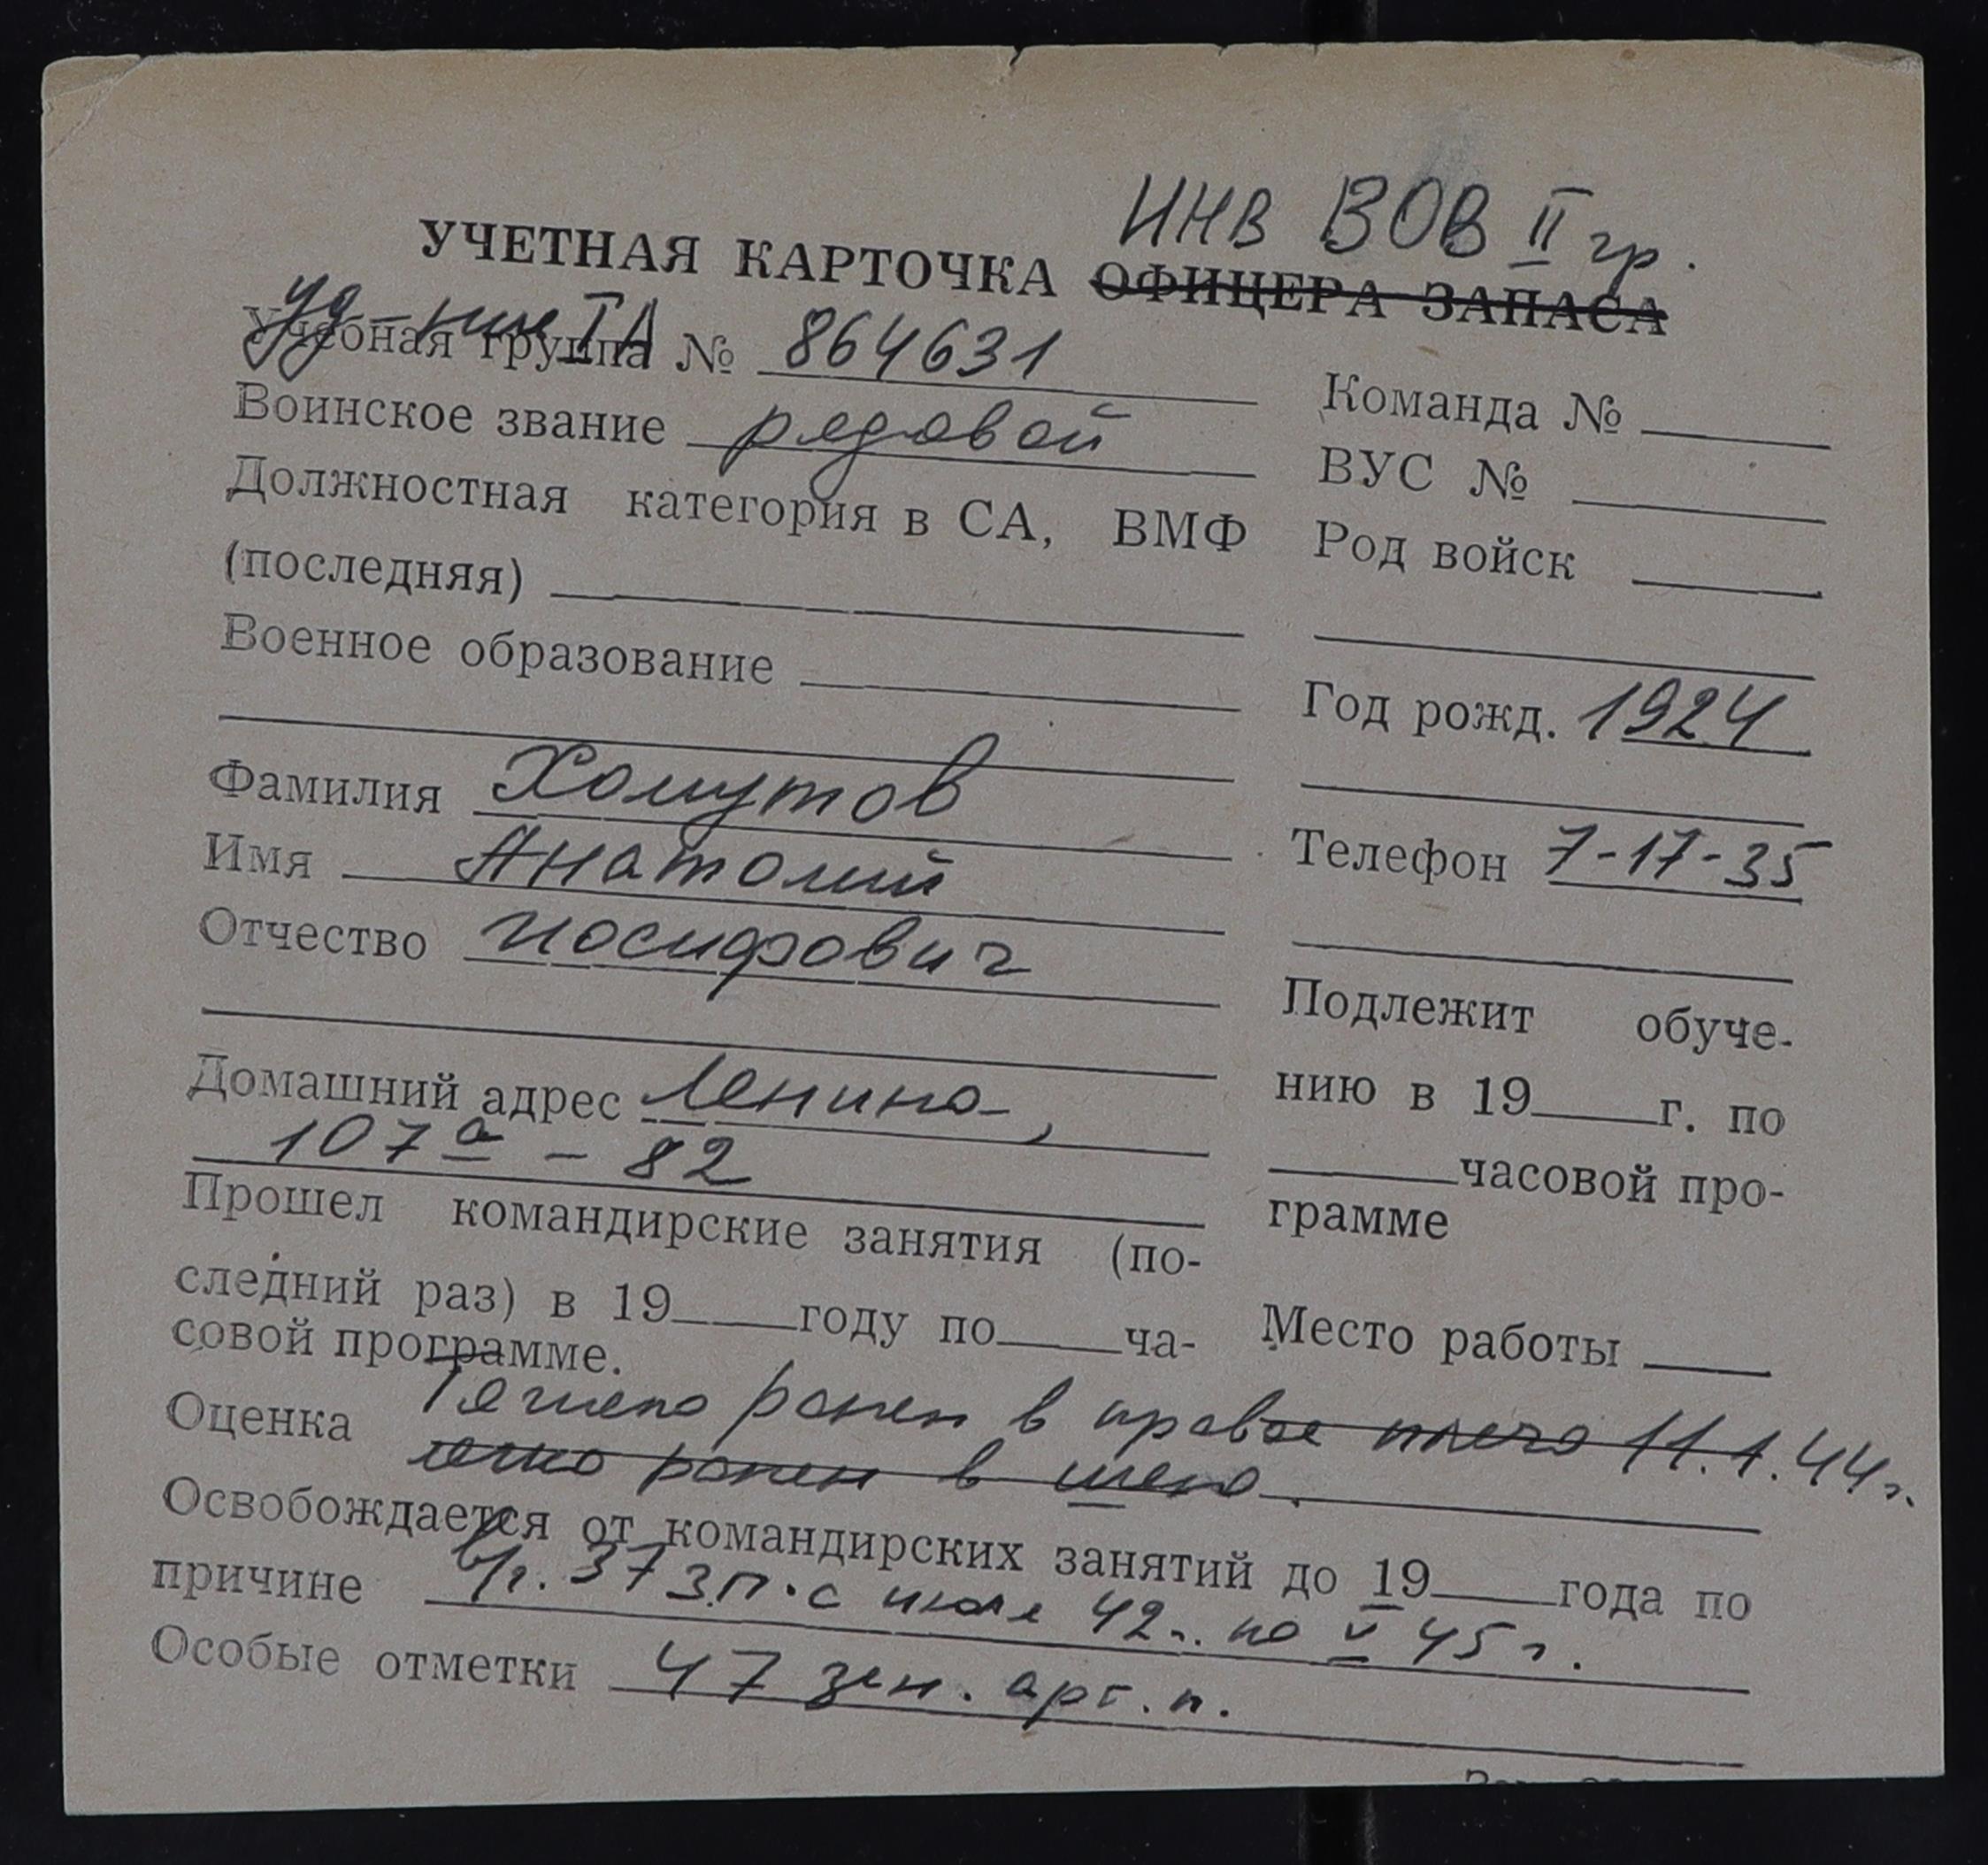 ИНВ ВОВ II гр.
УЧЕТНАЯ КАРТОЧКА ОФИЦЕРА ЗАПАСА
Учебная группа № 864631
Воинское звание рядовой
Должностная категория в СА, ВМФ
(последняя)
Военное образование
Фамилия Хомутов
Имя Анатолий
Отчество Иосифович
Домашний адрес Ленина,
107а - 82
Прошел командирские занятия (по-
следний раз) в 19 году по ча-
совой программе.
Команда №
ВУС №
Род войск
Год рожд. 1924
Телефон 7-17-35
Подлежит обуче-
нию в 19 г. по
часовой про-
грамме
Место работы
Тяжело ранен в правое плечо 11.1.44г.
Оценка
легко ранен в шею
Освобождается от командирских занятий до 19 года по
причине 37 З.П. с июля 42г. по V 45г.
Особые отметки 47 зен. арт. п.